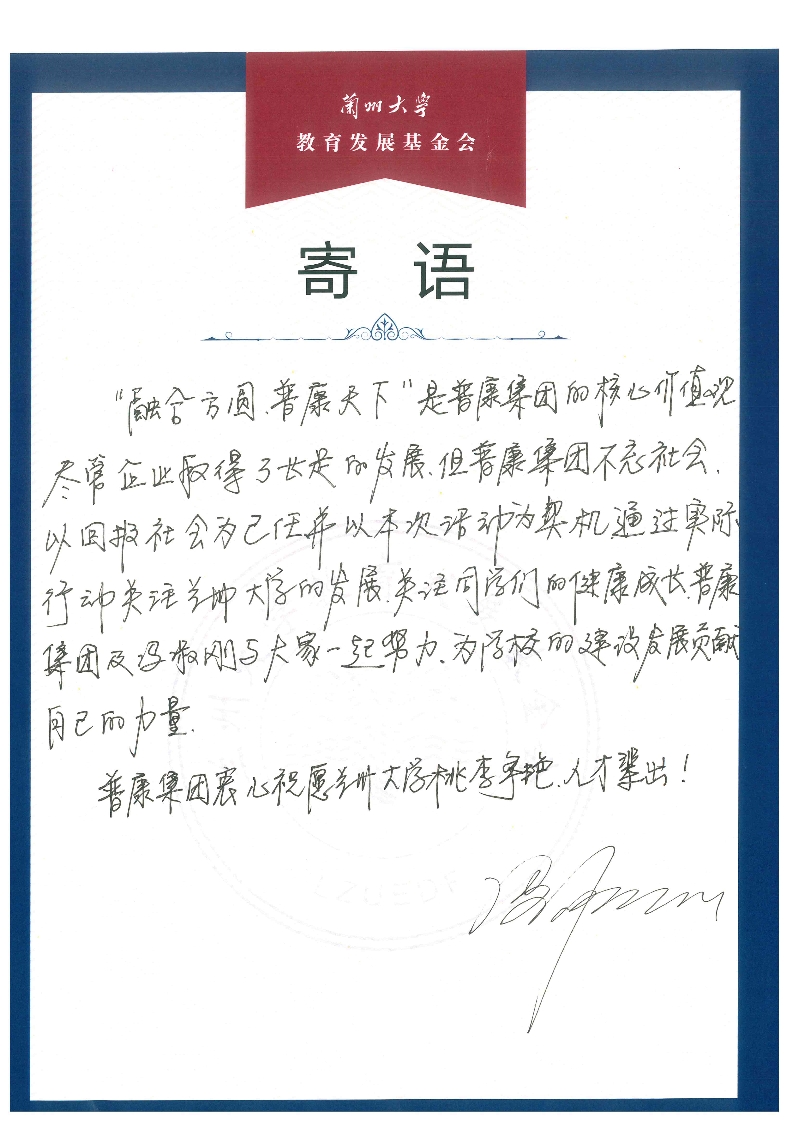 兰州大学
教育发展基金会
寄语
“融合方圆、普康天下”是普康集团的核心价值观
尽管企业取得了长足的发展、但普康集团不忘社会、
以回报社会为己任并以本次活动为契机通过实际
行动关注兰州大学的发展、关注同学们的健康成长、普康
集团及冯毅刚与大家一起努力、为学校的建设发展贡献
自己的力量.
普康集团衷心祝愿兰州大学桃李争艳、人才辈出！
LZUEDF